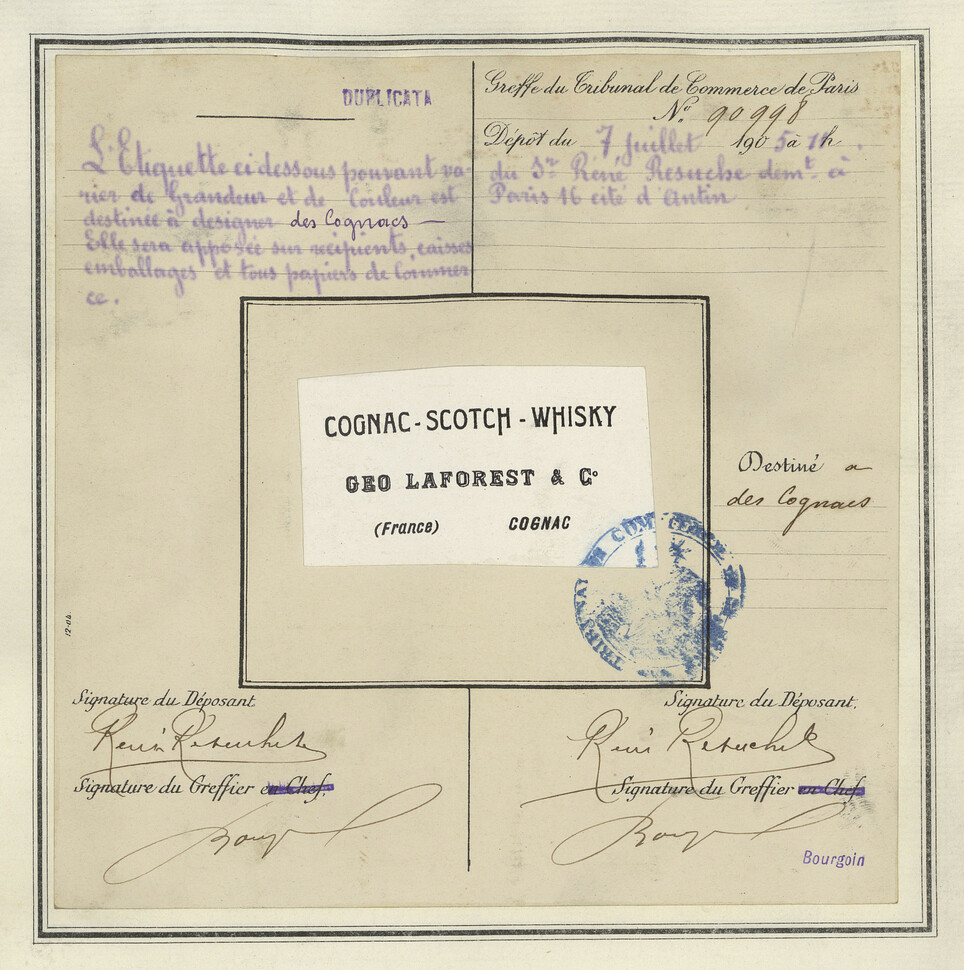 DUPLICATA
L'Etiquette ci dessous pouvant va-
rier de Grandeur et de Couleur est
destinée à designer des Cognacs —
Elle sera apposée sur recipients, caisses
emballages et tous papiers de Commer
ce.
Greffe du Tribunal de Commerce de Paris
N.º 90998
Dépôt du 7 juillet 1905 à 1h.
du Sr René Resuche demt. à
Paris 16 cité d'Antin
COGNAC - SCOTCH - WHISKY
GEO LAFOREST & Cº
(France) COGNAC
Destiné a
des Cognacs
TRIBUNAL DE COMMERCE
12-04
Signature du Déposant
René Resuche
Signature du Greffier en Chef.
Signature du Déposant.
René Resuche
Signature du Greffier en Chef
Bourgoin